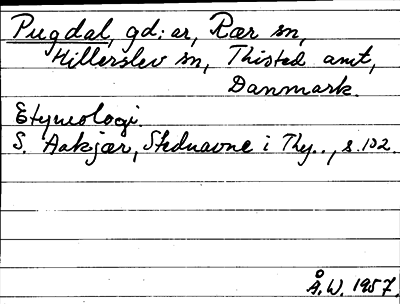 Pugdal, gd:ar, Rær sn,
Hillerslev sn, Thisted amt,
Danmark.
Etymologi.
S. Aakjær, Stednavne i Thy.., s. 102.
Å.W. 1957.